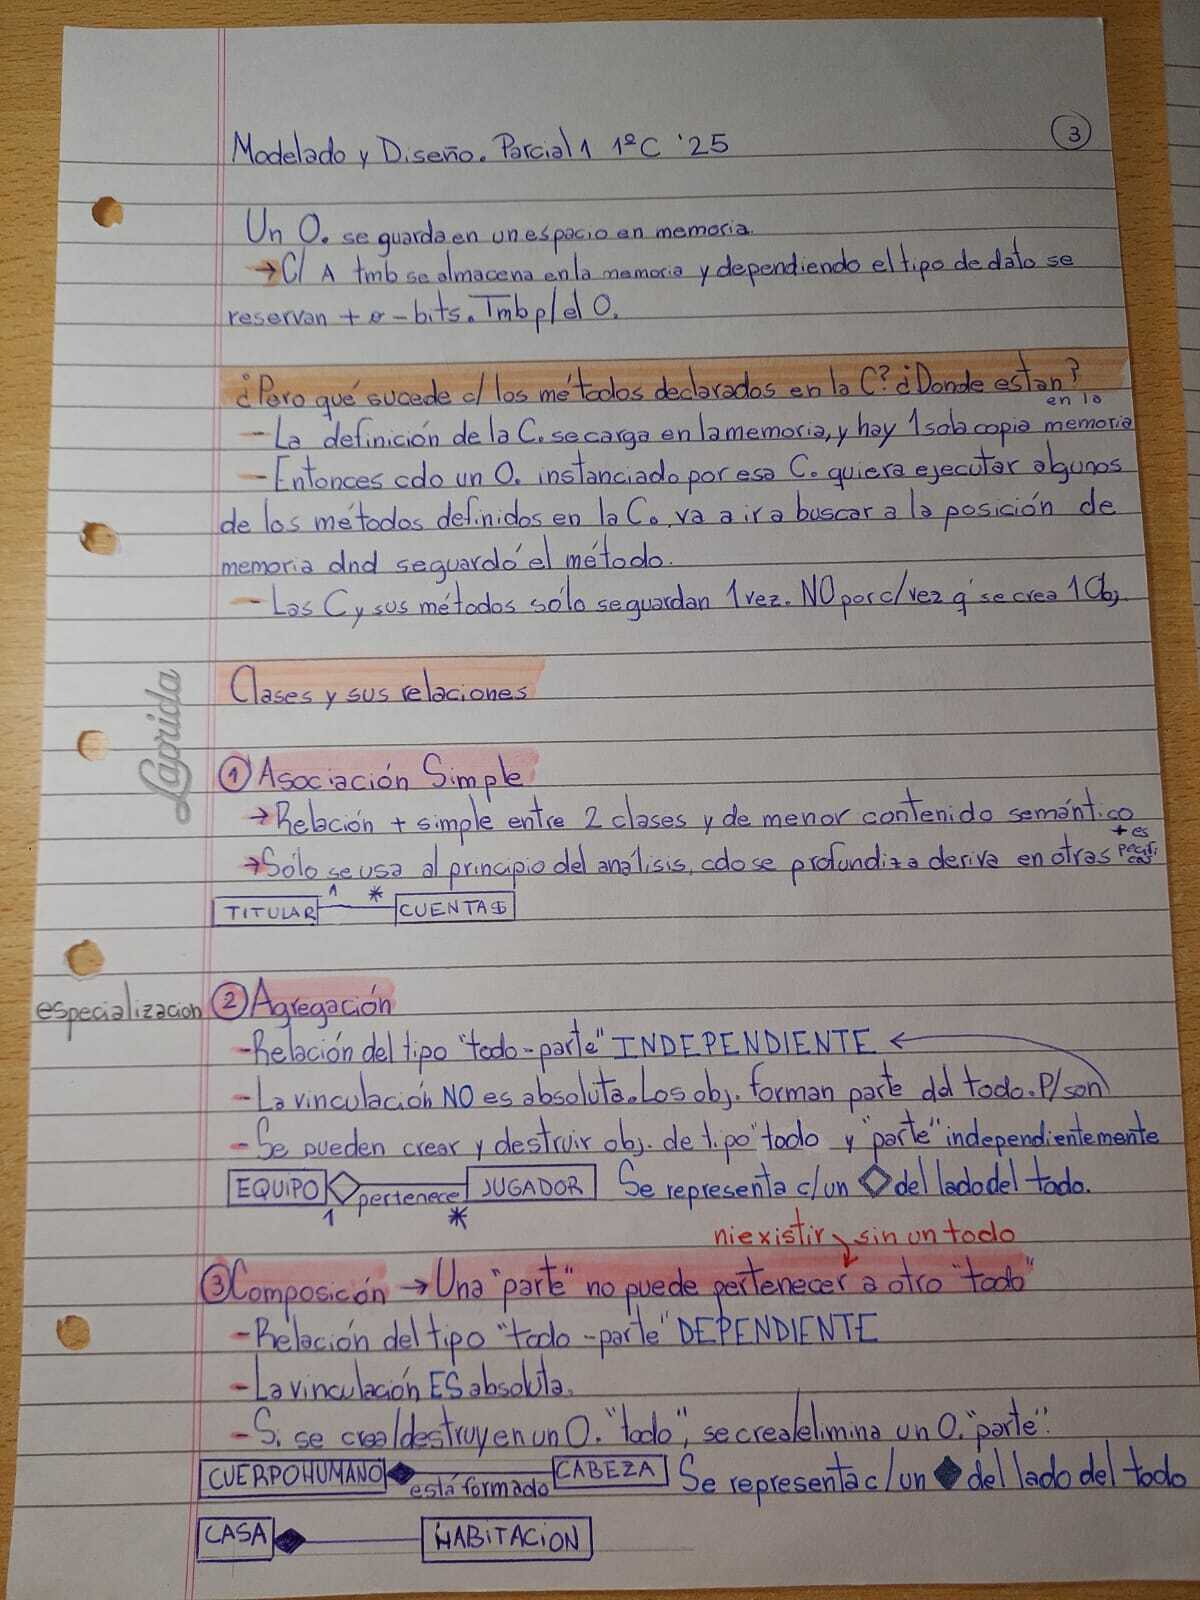 Modelado y Diseño. Parcial 1 1ºC '25
3
Un O. se guarda en un espacio en memoria.
→ C/ A tmb se almacena en la memoria y dependiendo el tipo de dato se
reservan + o - bits. Tmb p/ el O.
¿Pero qué sucede c/ los métodos declarados en la C? ¿Donde estan?
- La definición de la C. se carga en la memoria, y hay 1 sola copia en la memoria
- Entonces cdo un O. instanciado por esa C. quiera ejecutar algunos
de los métodos definidos en la C., va a ir a buscar a la posición de
memoria dnd se guardó el método.
- Las C y sus métodos sólo se guardan 1 vez. NO por c/ vez q' se crea 1 Obj.
Clases y sus relaciones
Laprida
① Asociación Simple
→ Relación + simple entre 2 clases y de menor contenido semántico
→ Sólo se usa al principio del análisis, cdo se profundiza deriva en otras + especificas
TITULAR 1 * CUENTAS
especializacion ② Agregación
- Relación del tipo "todo-parte" INDEPENDIENTE ←
- La vinculación NO es absoluta. Los obj. forman parte del todo. P/ son
- Se pueden crear y destruir obj. de tipo "todo y "parte" independientemente
EQUIPO 1 pertenece * JUGADOR Se representa c/ un ◇ del lado del todo.
ni existir sin un todo
③ Composición → Una "parte" no puede pertenecer a otro "todo"
- Relación del tipo "todo-parte" DEPENDIENTE
- La vinculación ES absoluta.
- Si se crea/destruye en un O. "todo", se crea/elimina un O. "parte".
CUERPO HUMANO está formado CABEZA Se representa c/ un ◆ del lado del todo
CASA HABITACION